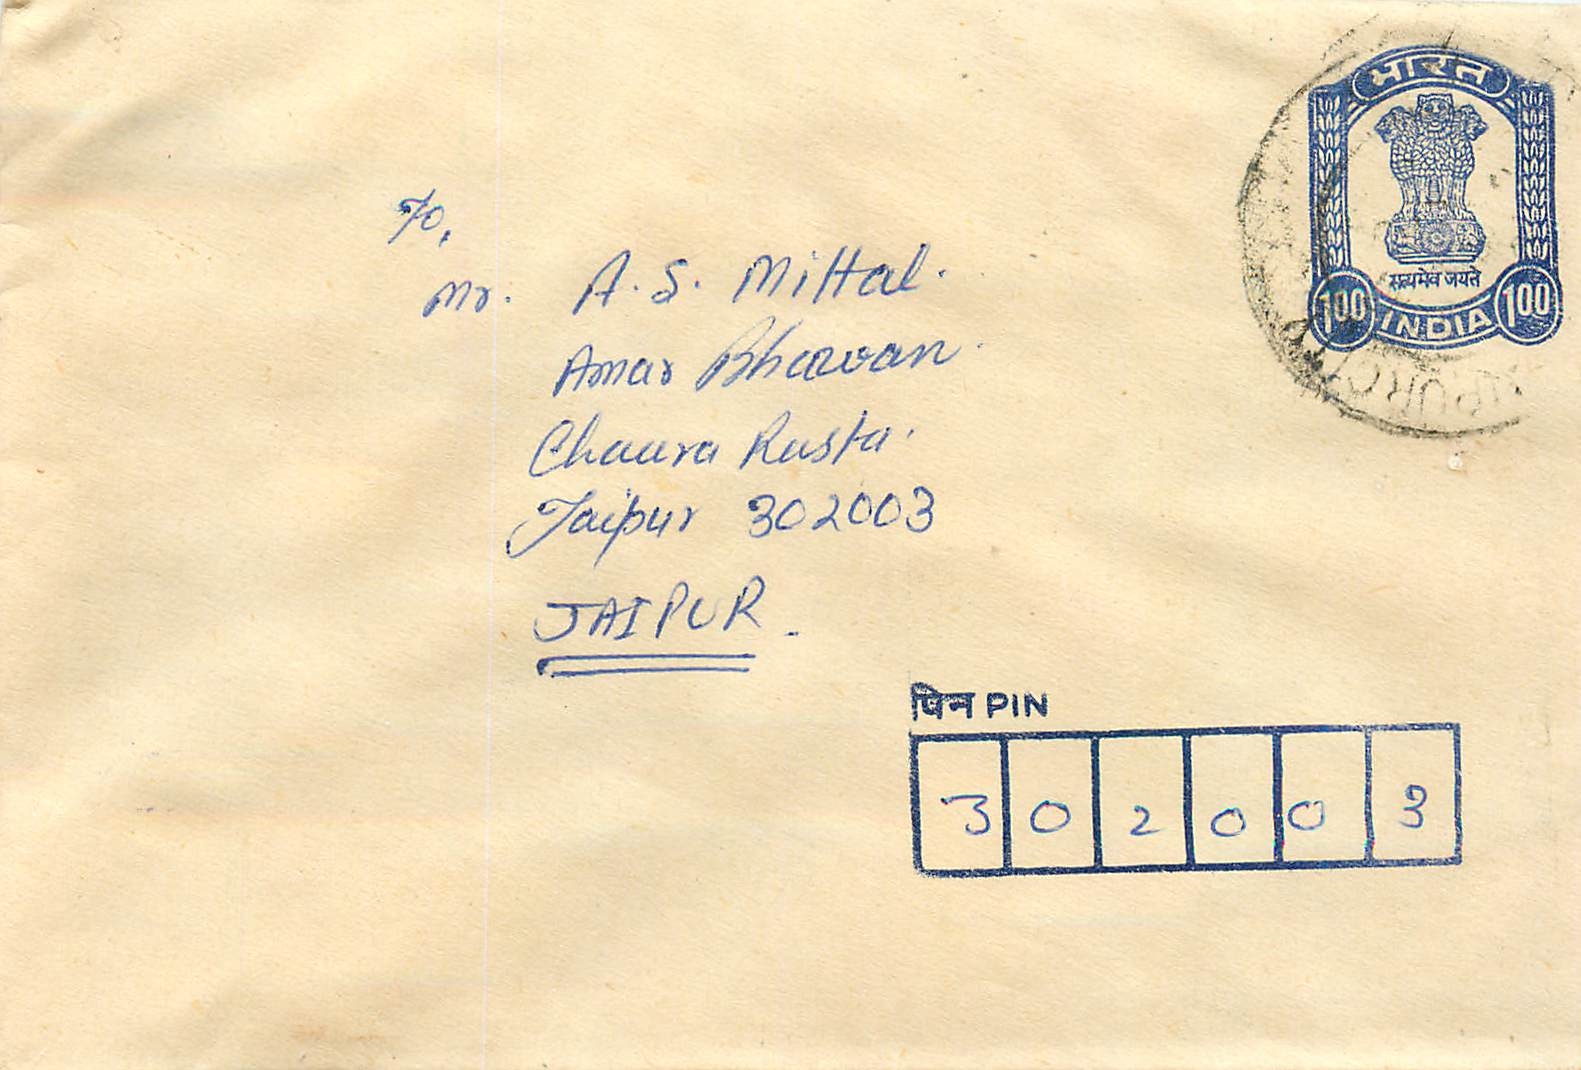 भारत
सत्यमेव जयते
100 INDIA 100
To,
Mr. A. S. Mittal.
Amar Bhawan
Chaura Rasta.
Jaipur 302003
JAIPUR.
पिन PIN
302003